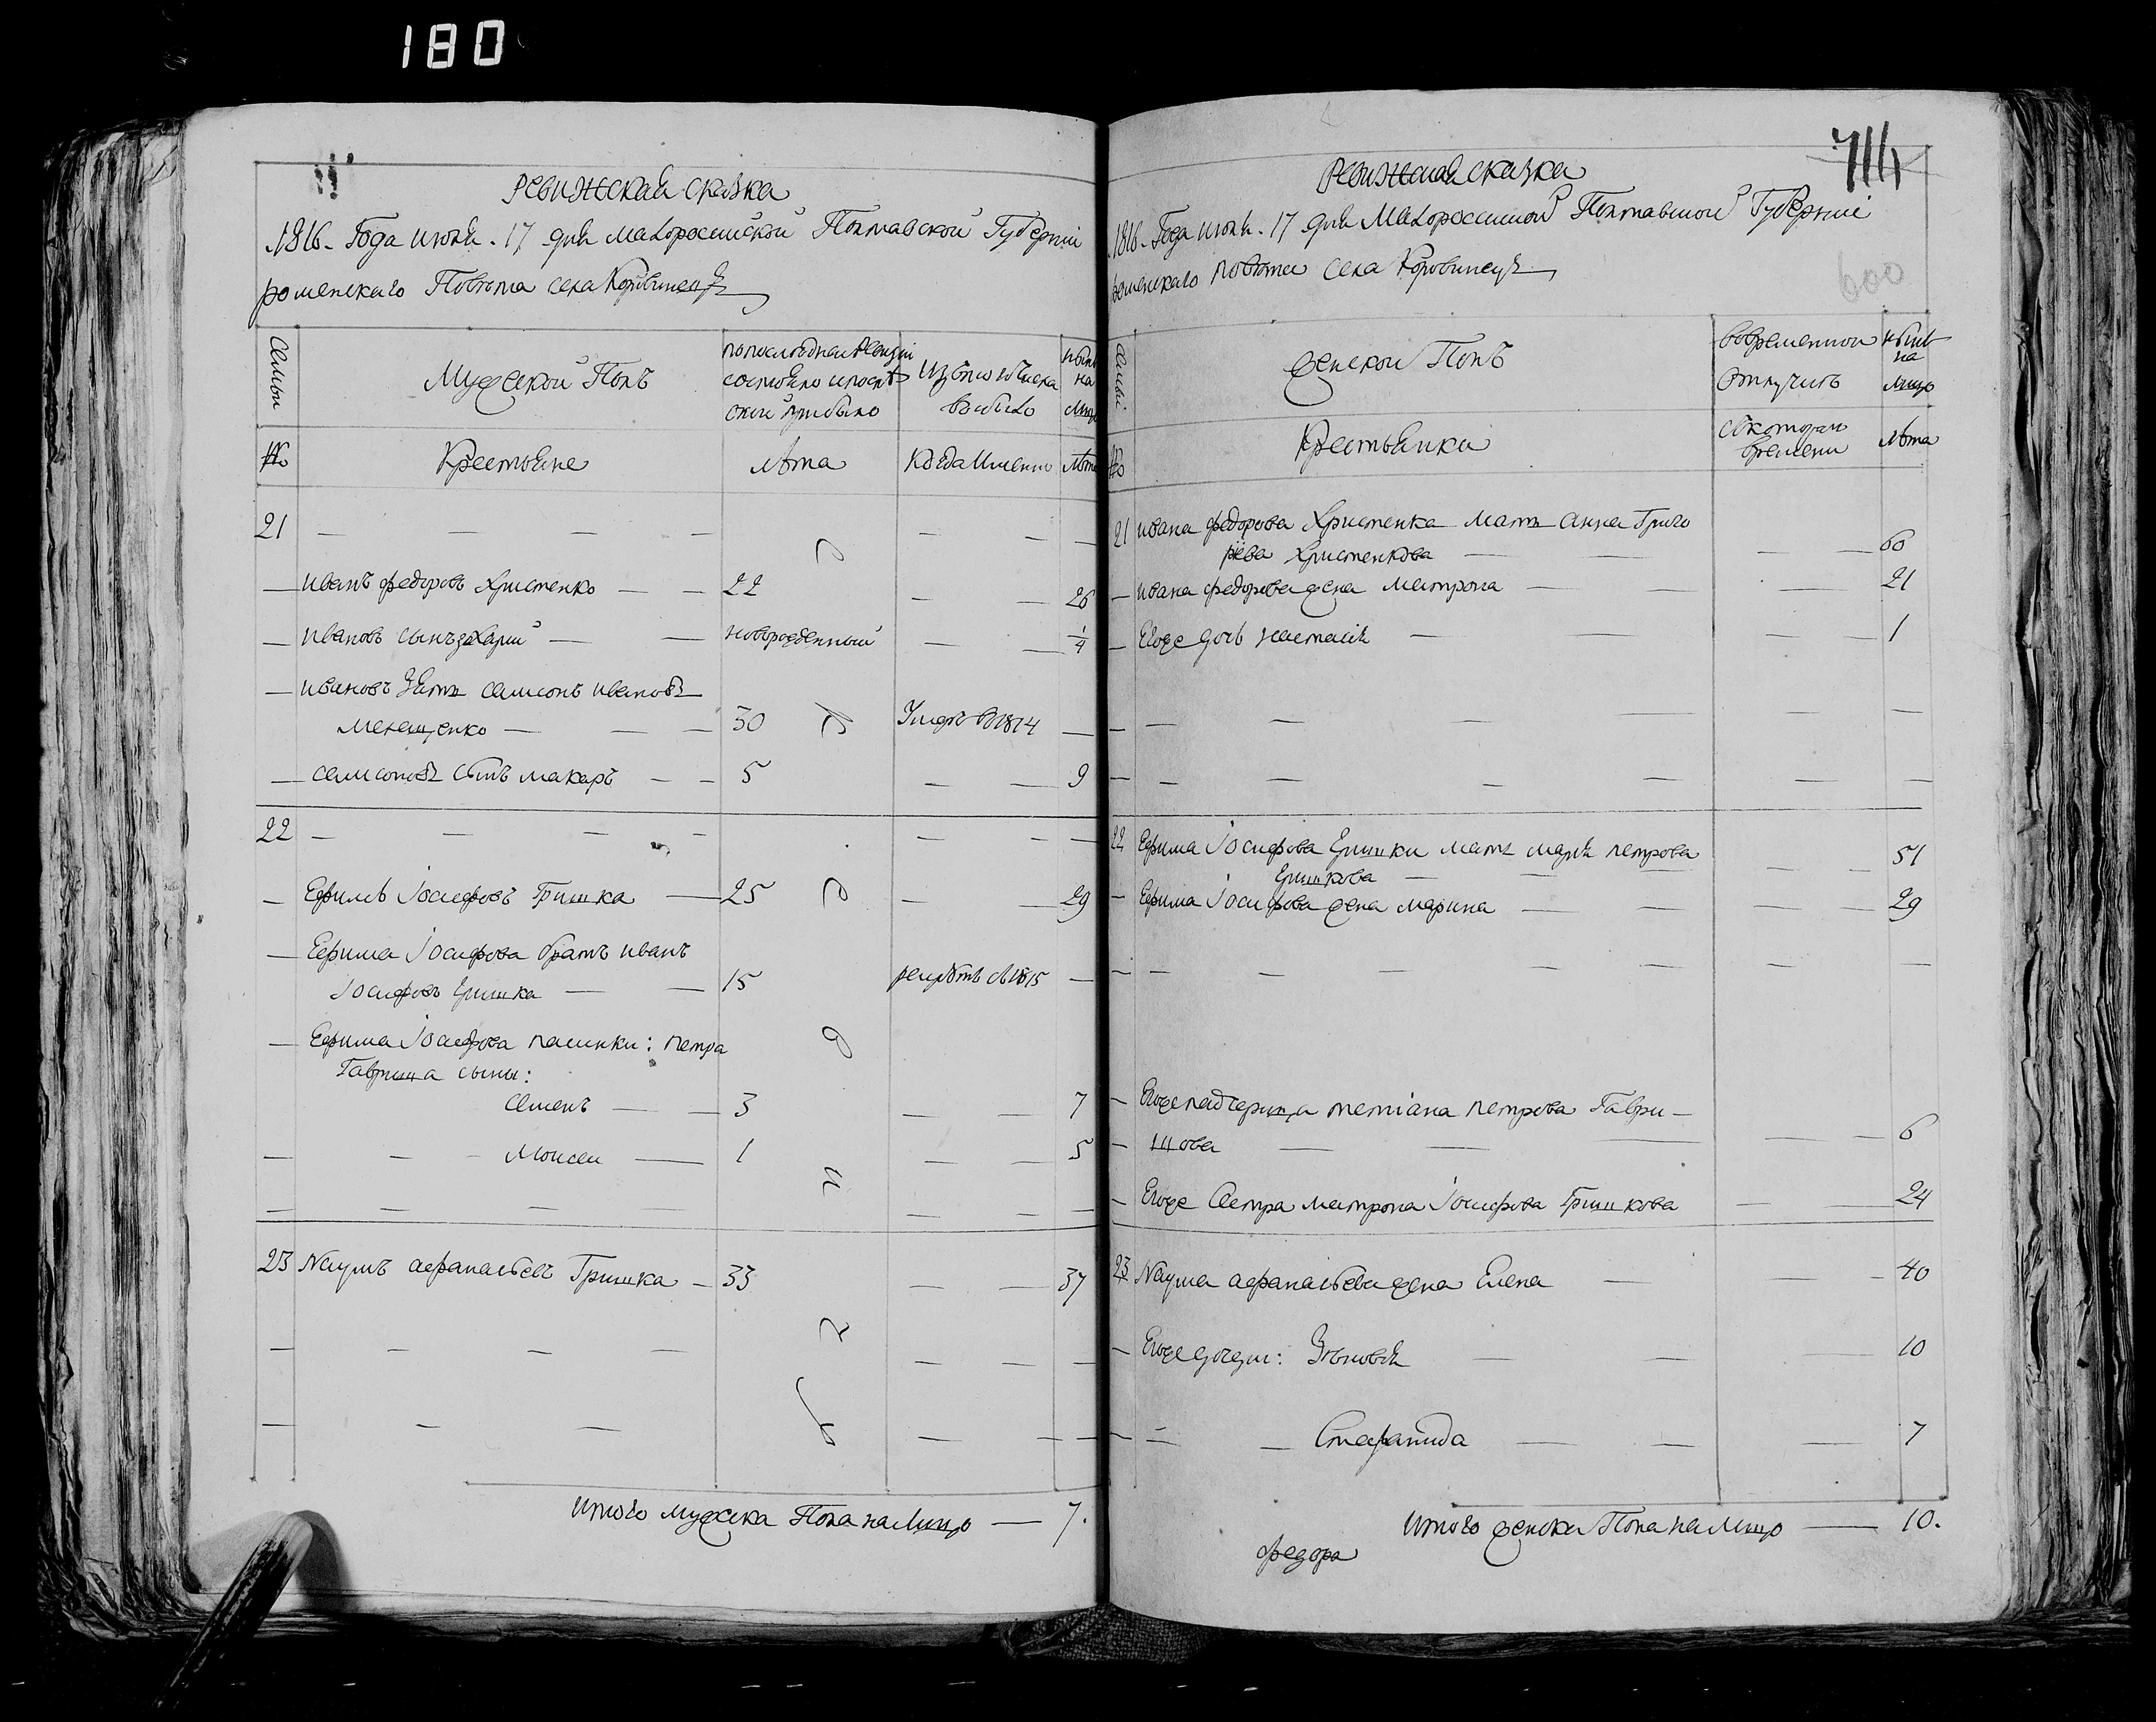 180
Ревижская сказка
1816. Года июня. 17 дня Малороссийской Полтавской Губерніи
роменскаго Повѣта села Коровинецъ
Семьи
Мужеской Полъ
по последней ревизіи
состояло и послѣ
оной прибыло
Изъ того числа
выбыло
ныне
на
лицо
№
Крестьяне
Лѣта
Когда Именно
Лѣта
21
Иванъ федоровъ Христенко 22 26
Ивановъ сынъ захарий новорожденный 1/4
Ивановъ Зять самсонъ ивановъ
30 Умеръ в 1814
самсоновъ сынъ макаръ 5 9
22
Ефимъ Іосифовъ Гришка 25 29
Ефима Іосифова братъ иванъ
Іосифовъ Гришка 15 рекрутъ в 1815
Ефима Іосифова пасинки: петра
Гавриша сыны:
Семенъ 3 7
Моисей 1 5
23 Наумъ афанасьевъ Гришка 33 37
Итого мужеска Пола налицо 7.
714
Ревижская сказка
1816. Года июня. 17 дня Малороссийской Полтавской Губерніи
роменскаго повѣта села Коровинецъ
600
Семьи
женской Полъ
во временной
отлучкѣ
ныне
на
лицо
№
Крестьянки
съ котораго
времени
Лѣта
21 ивана федорова Христенка мать анна Григо
рїева Христенкова 60
ивана федорова жена матрона 21
Егоже дочь настасія 1
22 Ефима Іосифова Гришки мать марія петрова
Гришкова 51
Ефима Іосифова жена марина 29
Егоже падчерица тетіана петрова Гаври-
шова 6
Егоже Сестра матрона Іосифова Гришкова 24
23 Наума афанасьева жена Елена 40
Егоже дочери: Зѣновія 10
7
Итого женска Пола налицо 10.
федора